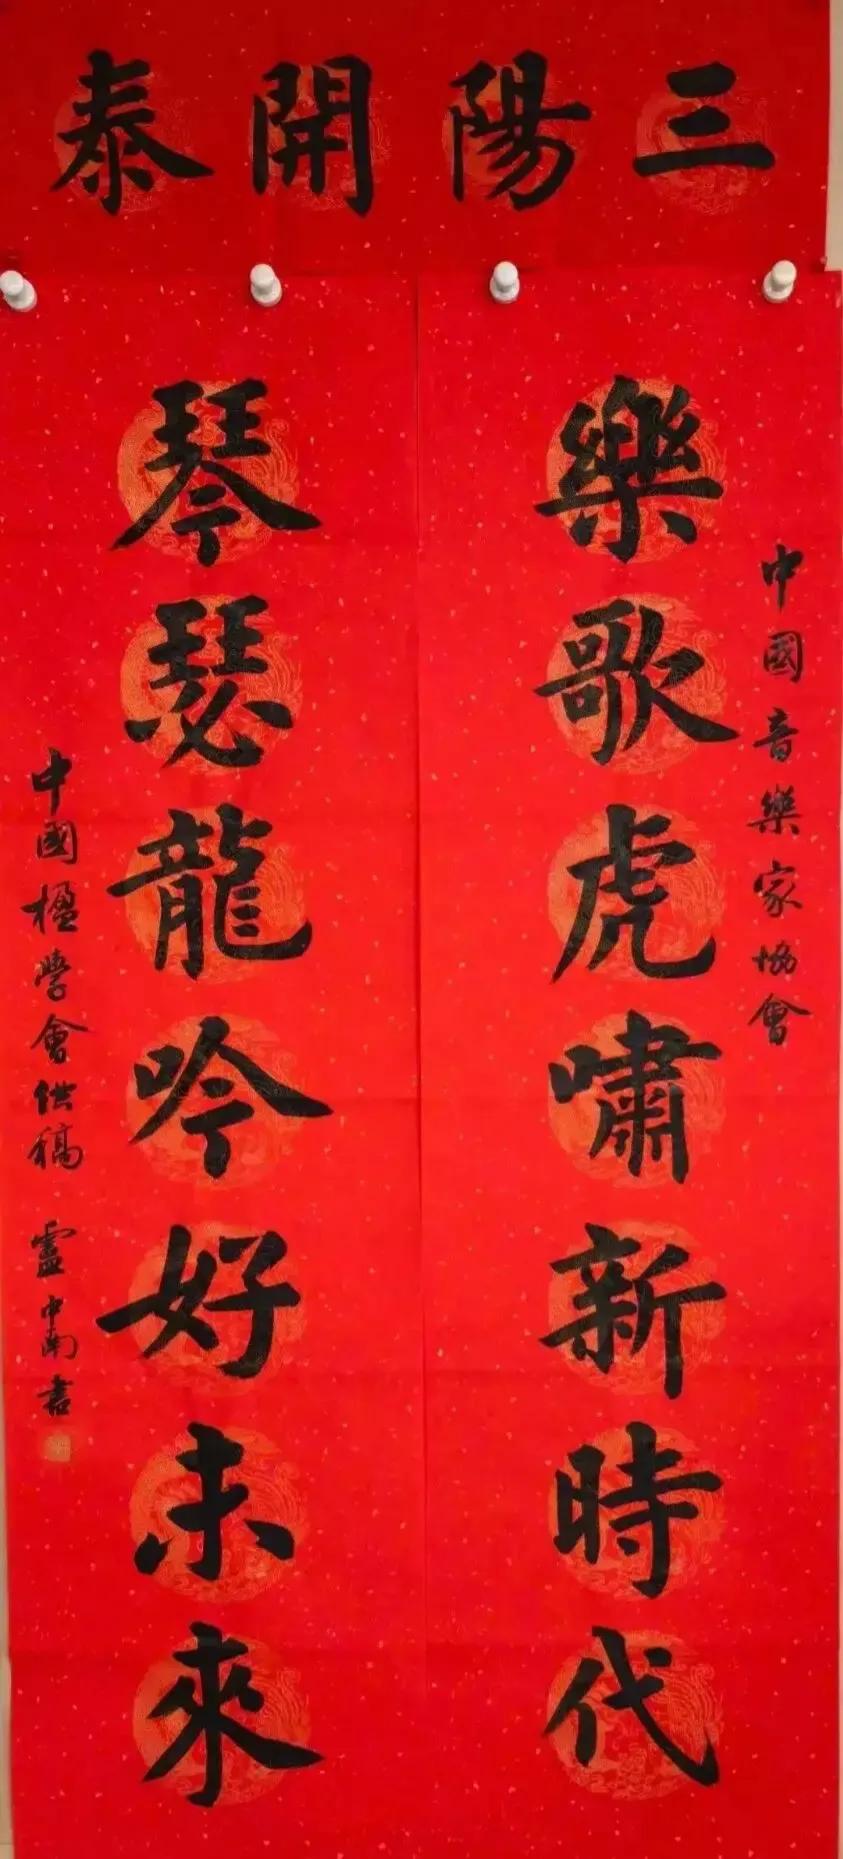 三陽開泰
樂歌虎嘯新時代
中國音樂家協會
琴瑟龍吟好未來
中國楹學會供稿 盧中南書